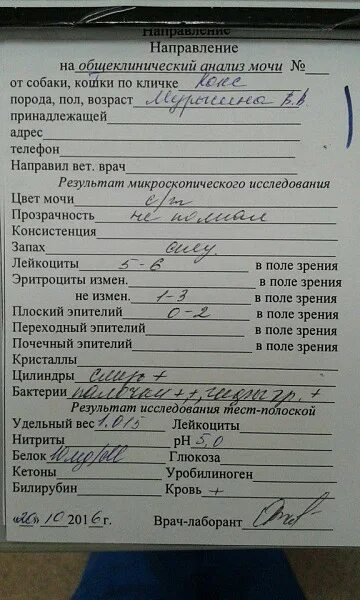 Направление
Направление
на общеклинический анализ мочи №
от собаки, кошки по кличке Кокс
порода, пол, возраст Мурышина В.В
принадлежащей
адрес
телефон
Направил вет. врач
Результат микроскопического исследования
Цвет мочи с/ж
Прозрачность не полная
Консистенция
Запах
Лейкоциты 5-6 в поле зрения
Эритроциты измен. в поле зрения
не измен. 1-3 в поле зрения
Плоский эпителий 0-2 в поле зрения
Переходный эпителий в поле зрения
Почечный эпителий в поле зрения
Кристаллы
Цилиндры слизь +
Бактерии палочки ++,
Результат исследования тест-полоской
Удельный вес 1.015 Лейкоциты
Нитриты pH 5,0
Белок Глюкоза
Кетоны Уробилиноген
Билирубин Кровь +
«20» 10 2016 г. Врач-лаборант